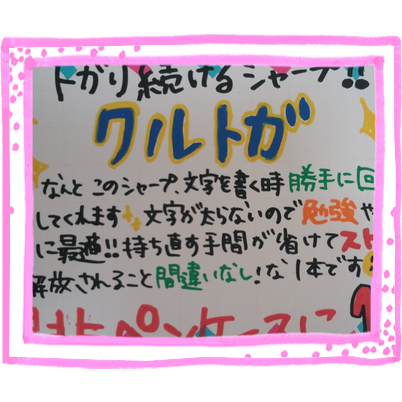 トガり続けるシャープ!!
クルトガ
なんと このシャープ、文字を書く時 勝手に回
してくれます✨文字が太らないので 勉強や
に最適!!持ち直す手間が省けてスト
解放されること間違いなし!な1本です
ペンケースに